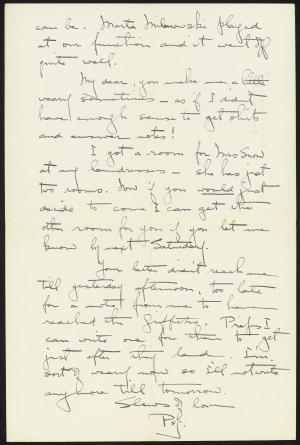 can be. Marta Milinowski played
at our function and it went off
quite well.
My dear, you make me a little
weary sometimes – as if I didn't
have enough sense to get shirts
and answer notes!
I got a room for Mrs Snow
at my laundress – she has just
two rooms. Now if you would just
decide to come I can get the
other room for you if you let me
know by next Saturday.
Your letter didn't reach me
till yesterday afternoon, too late
for a note from me to have
reached the Giffens. Prof. I
can write one for them to get
just after they land. I'm
sort of weary now so I'll not write
anymore till tomorrow.
Slews of love
Peg.